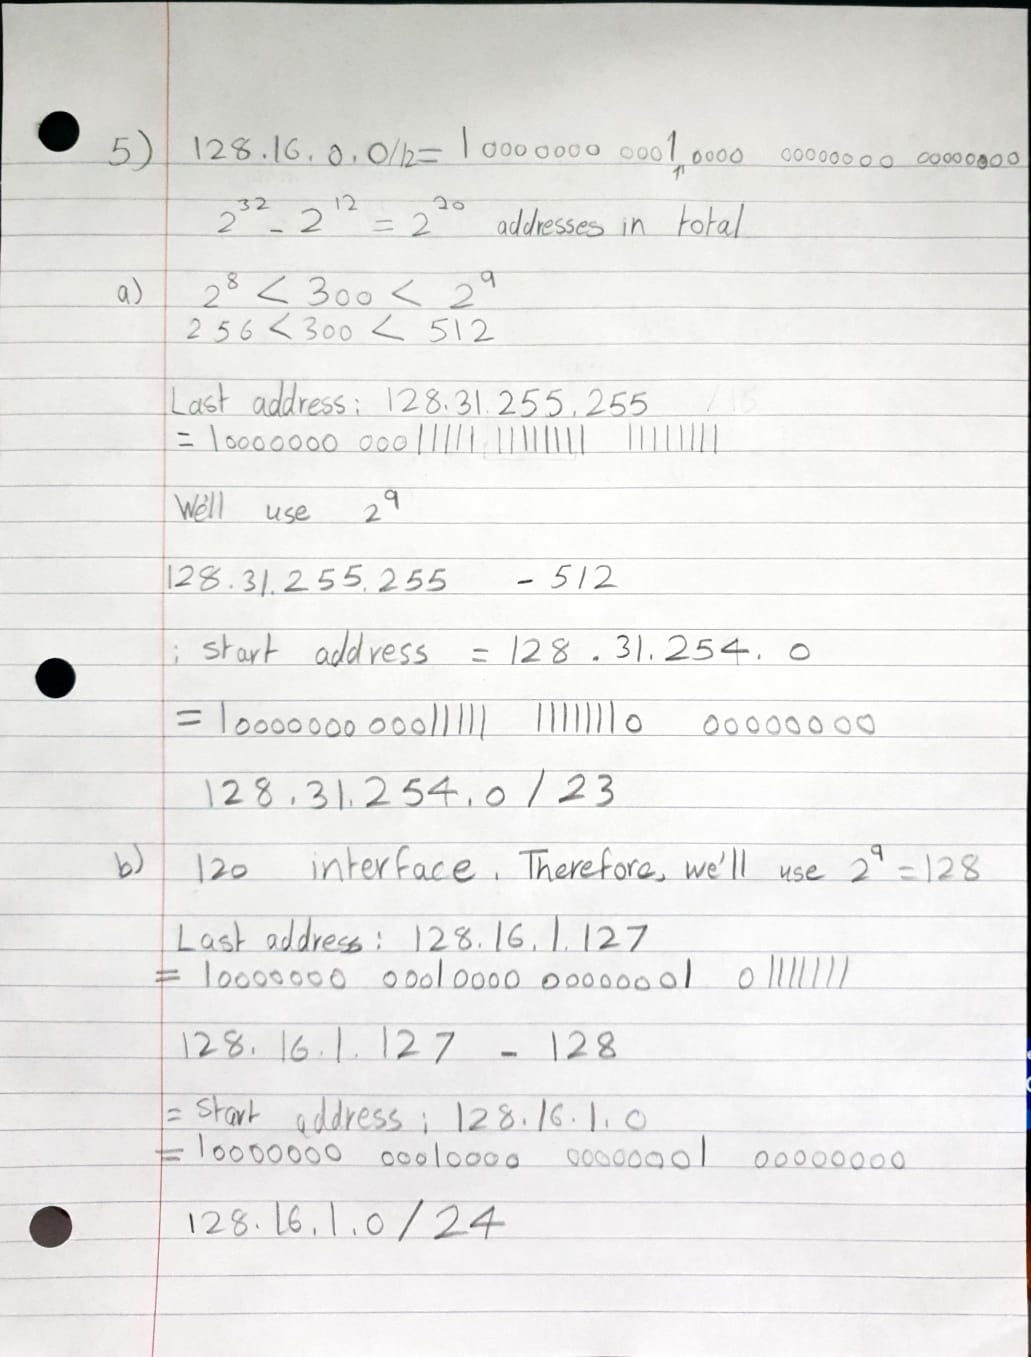 5) 128.16.0.0/12= 10000000 0001↑0000 00000000 00000000
2^32 - 2^12 = 2^20 addresses in total
a) 2^8 < 300 < 2^9
256 < 300 < 512
Last address: 128.31.255.255 /15
= 10000000 00011111 11111111 11111111
We'll use 2^9
128.31.255.255 - 512
; start address = 128.31.254.0
= 10000000 00011111 11111110 00000000
128.31.254.0/23
b) 120 interface. Therefore, we'll use 2^9 = 128
Last address: 128.16.1.127
= 10000000 00010000 00000001 01111111
128.16.1.127 - 128
= start address; 128.16.1.0
= 10000000 00010000 00000001 00000000
128.16.1.0/24